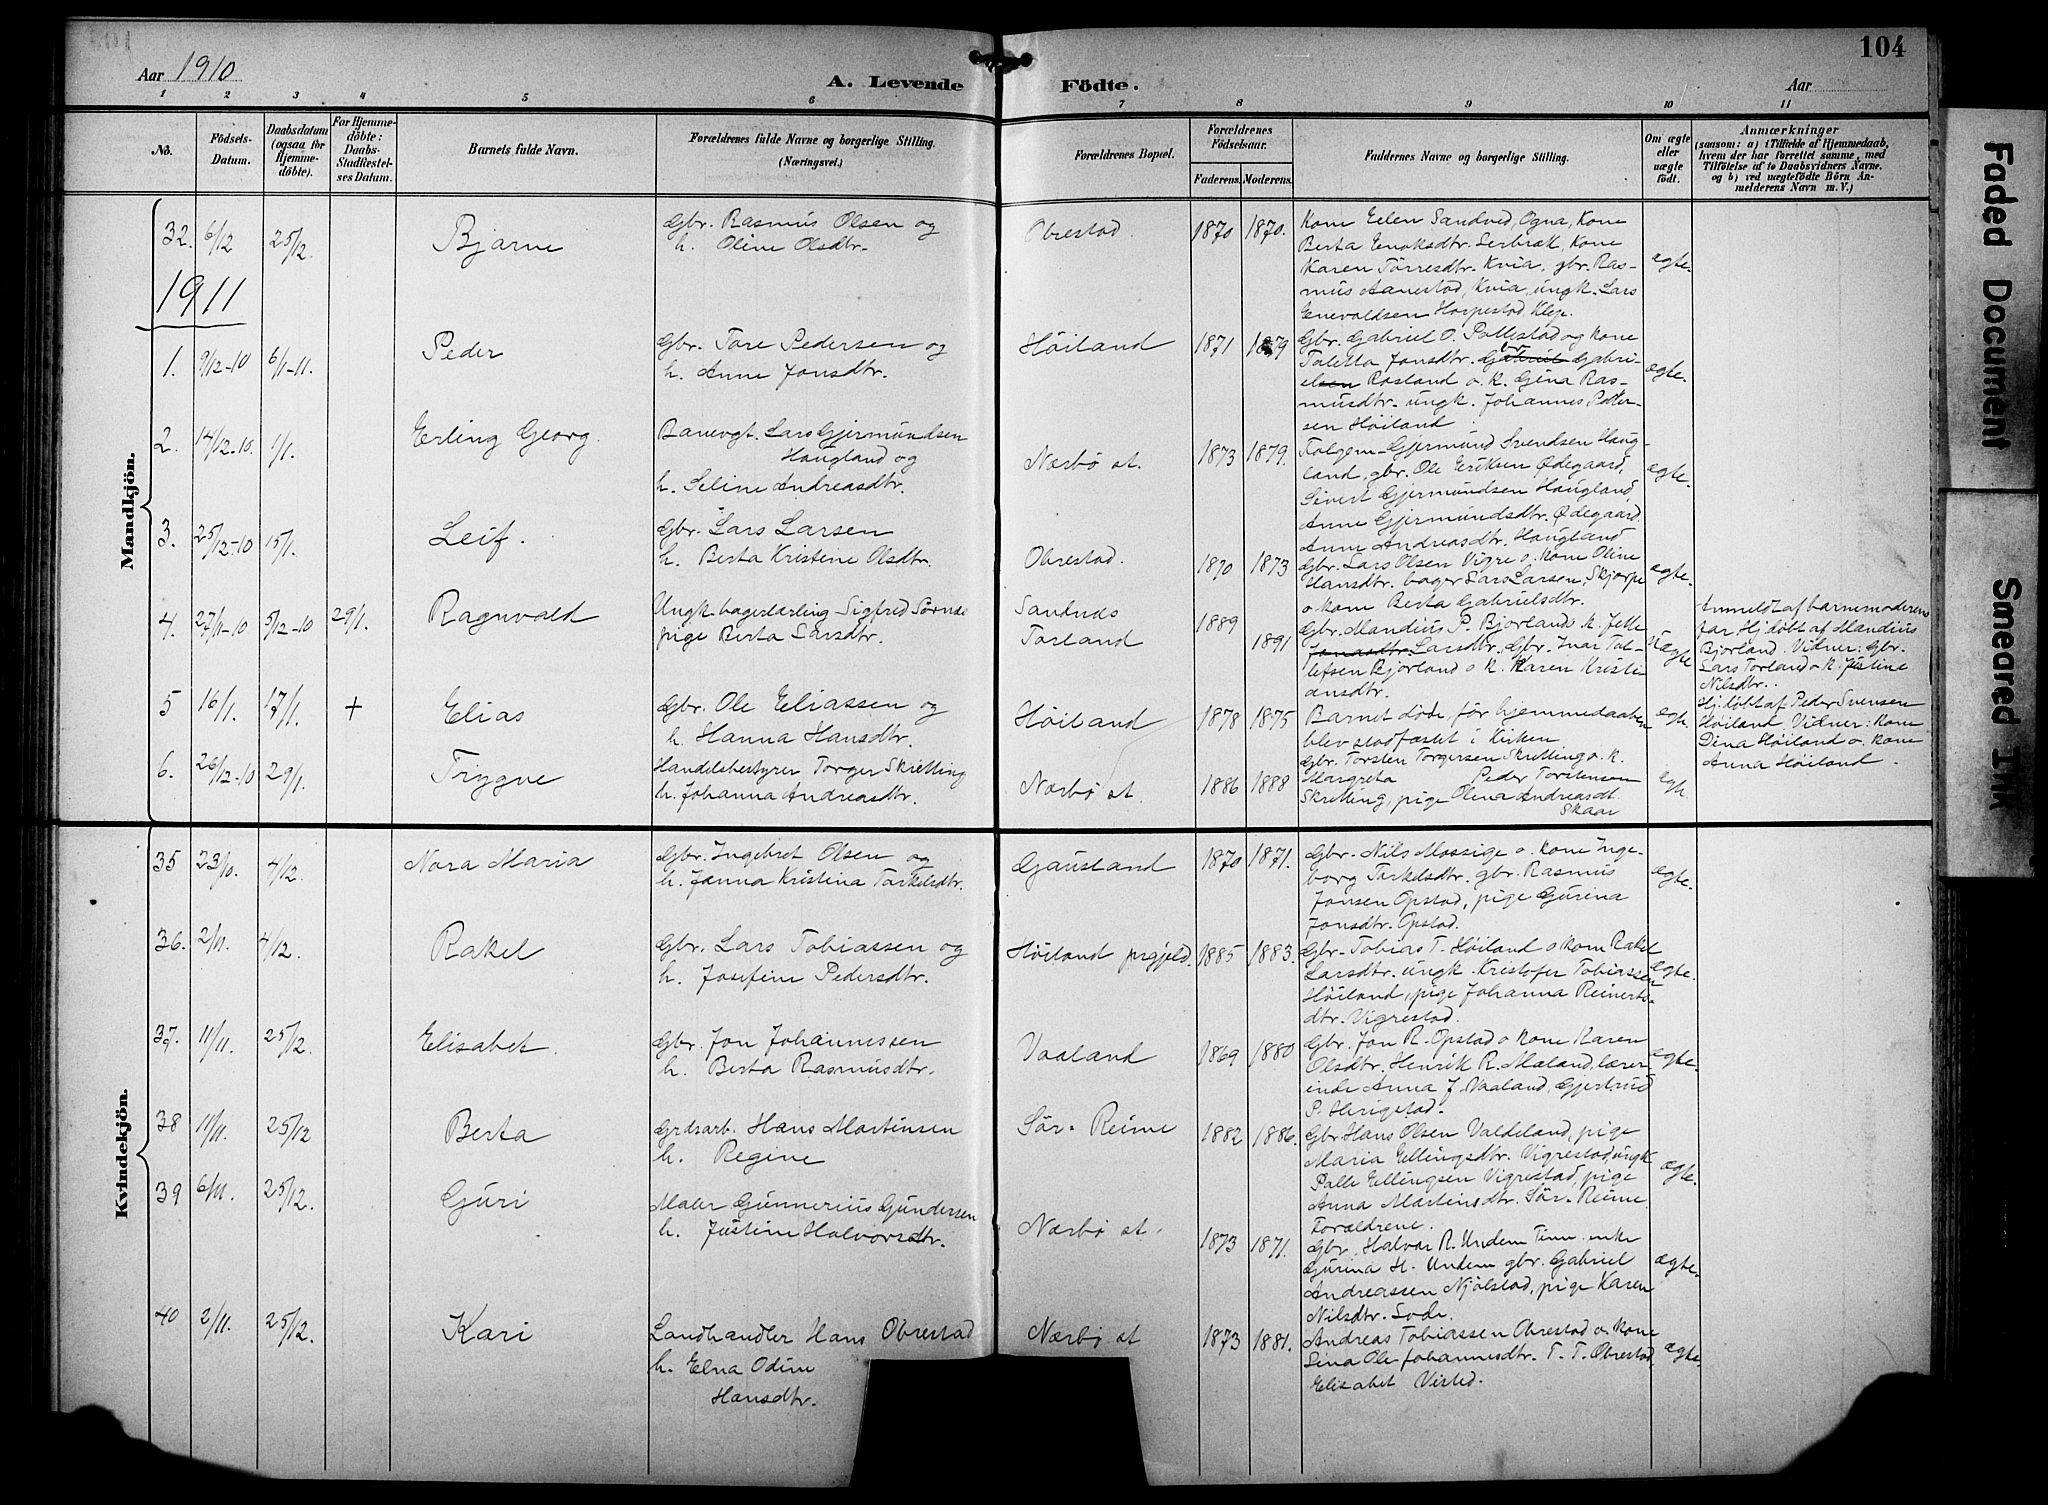 104
Aar 1910
A. Levende Födte.
Aar
1 2 3 4 5 6 7 8 9 10 11
No.
Födsels-Datum.
Daabsdatum (ogsaa for Hjemme-döbte).
For Hjemme-döbte: Daabs-Stadfæstel-ses Datum.
Barnets fulde Navn.
Forældrenes fulde Navne og borgerlige Stilling.
(Næringsvei.)
Forældrenes Bopæl.
Forældrenes Födselsaar.
Faderens. Moderens.
Faddernes Navne og borgerlige Stilling.
Om ægte eller uægte födt.
Anmærkninger
(saasom: a) i Tilfælde af Hjemmedaab,
hvem der har forrettet samme, med
Tilföielse af to Daabsvidners Navne.
og b) ved uægtefödte Börn An-
melderens Navn m. V.)
Mandkjön.
32. 6/12 25/12. Bjarne
Gbr. Rasmus Olsen og
h. Oline Olsdtr.
Obrestad. 1870 1870.
Kone Elen Sandved, Ogna, Kone
Berta Enoksdtr. Serbræk, Kone
Karen Törresdtr. Kvia, gbr. Ras-
mus Aanestad, Kvia, ungk. Lars
Enevaldsen Horpestad Klep.
ægte.
1911
1. 9/12-10 6/1-11. Peder
Gbr. Tore Pedersen og
h. Anne Jonsdtr.
Höiland 1871 1879
Gbr. Gabriel O. Pollestad og kone
Taletta Jonsdtr. Gbr. Gabri-
el Rosland o. k. Gina Ras-
musdtr. ungk. Johannes Peder-
sen Höiland
ægte.
2. 14/12-10. 1/1. Erling Georg.
Banevogt. Lars Gjermundsen
Haugland og
h. Seline Andreasdtr.
Nærbö st. 1873 1879.
Gjermund Svendsen Haug-
land, gbr. Ole Eriksen Ödegaard,
Sivert Gjermundsen Haugland,
Anne Gjermundsdtr. Ödegaard.
Anne Andreasdtr. Haugland
ægte.
3. 25/12-10 15/1. Leif.
Gbr. Lars Larsen
h. Berta Kristine Olsdtr.
Obrestad. 1870 1873
Gbr. Lars Olsen Vigre o. kone Oline
Hansdtr. bager Lars Larsen, Skjorpe
o kone Berta Gabrielsdtr.
ægte.
4. 27/11-10 5/12-10 29/1. Ragnvald
Ungk. bagerlærling Sigfred Sörnæs
pige Berta Larsdtr.
Sandnæs
Torland
1889 1891
Gbr. Mandius P. Bjorland o k. Jette
Jonasdtr. Larsdtr. Gbr. Ivar Tol-
lefsen Bjorland o k. Karen Kristi-
ansdtr.
Uægte
Anmeldt af barnemoderens
far Hj.döbt af Mandius
Bjorland. Vidner: Gbr.
Lars Torland o k. Justine
Nilsdtr.
5 16/1. 17/1. + Elias
Gbr. Ole Eliassen og
h. Hanna Hansdtr.
Höiland 1878 1875
Barnet döde för hjemmedaaben
blev stadfæstet i Kirken
ægt.
Hj.döbt af Peder Svensen
Höiland, Vidner: Kone
Dina Höiland o. kone
Anna Höiland.
6. 26/12-10 29/1. Trygve
Handelsbestyrer Torger Skretting
h. Johanna Andreasdtr.
Nærbö st. 1886 1888
Gbr. Torsten Torgersen Skretting o. k.
Margreta Peder Torstensen
Skretting, pige Olena Andreasdt
Skaar
ægt.
Kvindekjön.
35 23/10. 4/12. Nora Maria
Gbr. Ingebret Olsen og
h. Janna Kristina Torkelsdtr.
Gausland 1870 1871.
Gbr. Nils Mossige o. kone Inge-
borg Torkelsdtr. gbr. Rasmus
Jonsen Opstad, pige Gurina
Jonsdtr. Opstad.
ægte.
36. 2/11. 4/12. Rakel
Gbr. Lars Tobiassen og
h. Josefine Pedersdtr.
Höiland prgjeld. 1885 1883.
Gbr. Tobias T. Höiland o kone Rakel
Larsdtr. ungk. Kristofer Tobiassen
Höiland, pige Johanna Reinerts-
dtr. Vigrestad.
ægte.
37. 11/11. 25/12. Elisabet.
Gbr. Jon Johannessen
h. Berta Rasmusdtr.
Vaaland 1869 1880
Gbr. Jon R. Opstad o kone Karen
Olsdtr. Henrik R. Maland, lærer-
inde Anna J. Vaaland, Gjertrud
P. Herigstad.
ægte.
38 11/11. 25/12 Berta
Grdsarb. Hans Martinsen
h. Regine
Sör-Reime 1882 1886.
Gbr Hans Olsen Valdeland, pige
Maria Ellingsdtr. Vigrestad, ungk
Palle Ellingsen Vigrestad, pige
Anna Martinsdtr. Sör-Reime
Forældrene.
ægte.
39 6/11. 25/12. Guri
Maler Gunnerius Gundersen
h. Justine Halvorsdtr.
Nærbö st. 1873 1871.
Gbr. Halvor R. Undem Time enke
Gurina H. Undem gbr. Gabriel
Andreassen Njölstad, pige Karen
Nilsdtr. Lode.
ægte.
40 2/11. 25/12. Kari
Landhandler Hans Obrestad
h. Elna Odine
Hansdtr.
Nærbö st 1873 1881.
Andreas Tobiassen Obrestad o. kone
Lina Ole Johannesdtr. T. T. Obrestad,
Elisabet Virsted.
ægte.
Faded Document
Smeared Ink